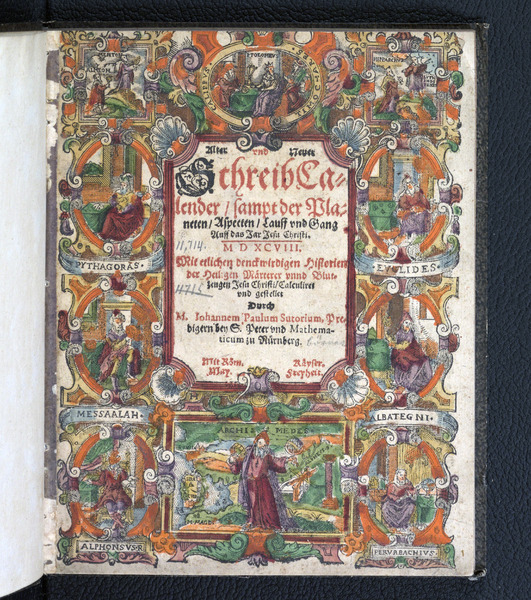 PTOLOMEVS
HIPPARCHVS
Alter vnd Newer
SchreibCa-
lender / sampt der Pla-
neten / Aspecten / Lauff vnd Gang
Auff das Jar Jesu Christi.
M D XCVIII.
11,714.
Mit etlichen denckwirdigen Historien
der Heiligen Märterer vnnd Blut-
zeugen Jesu Christi / Calculiret
vnd gestellet
Durch
M. Johannem Paulum Sutorium, Pre-
digern bey S. Peter vnd Mathema-
ticum zu Nürnberg.
Mit Röm. Käyser.
May. Freyheit.
PYTHAGORAS.
EVCLIDES.
MESSAALAH.
ALBATEGNI.
ARCHIMEDES
ALPHONSVS.R
PERVRBACHIVS